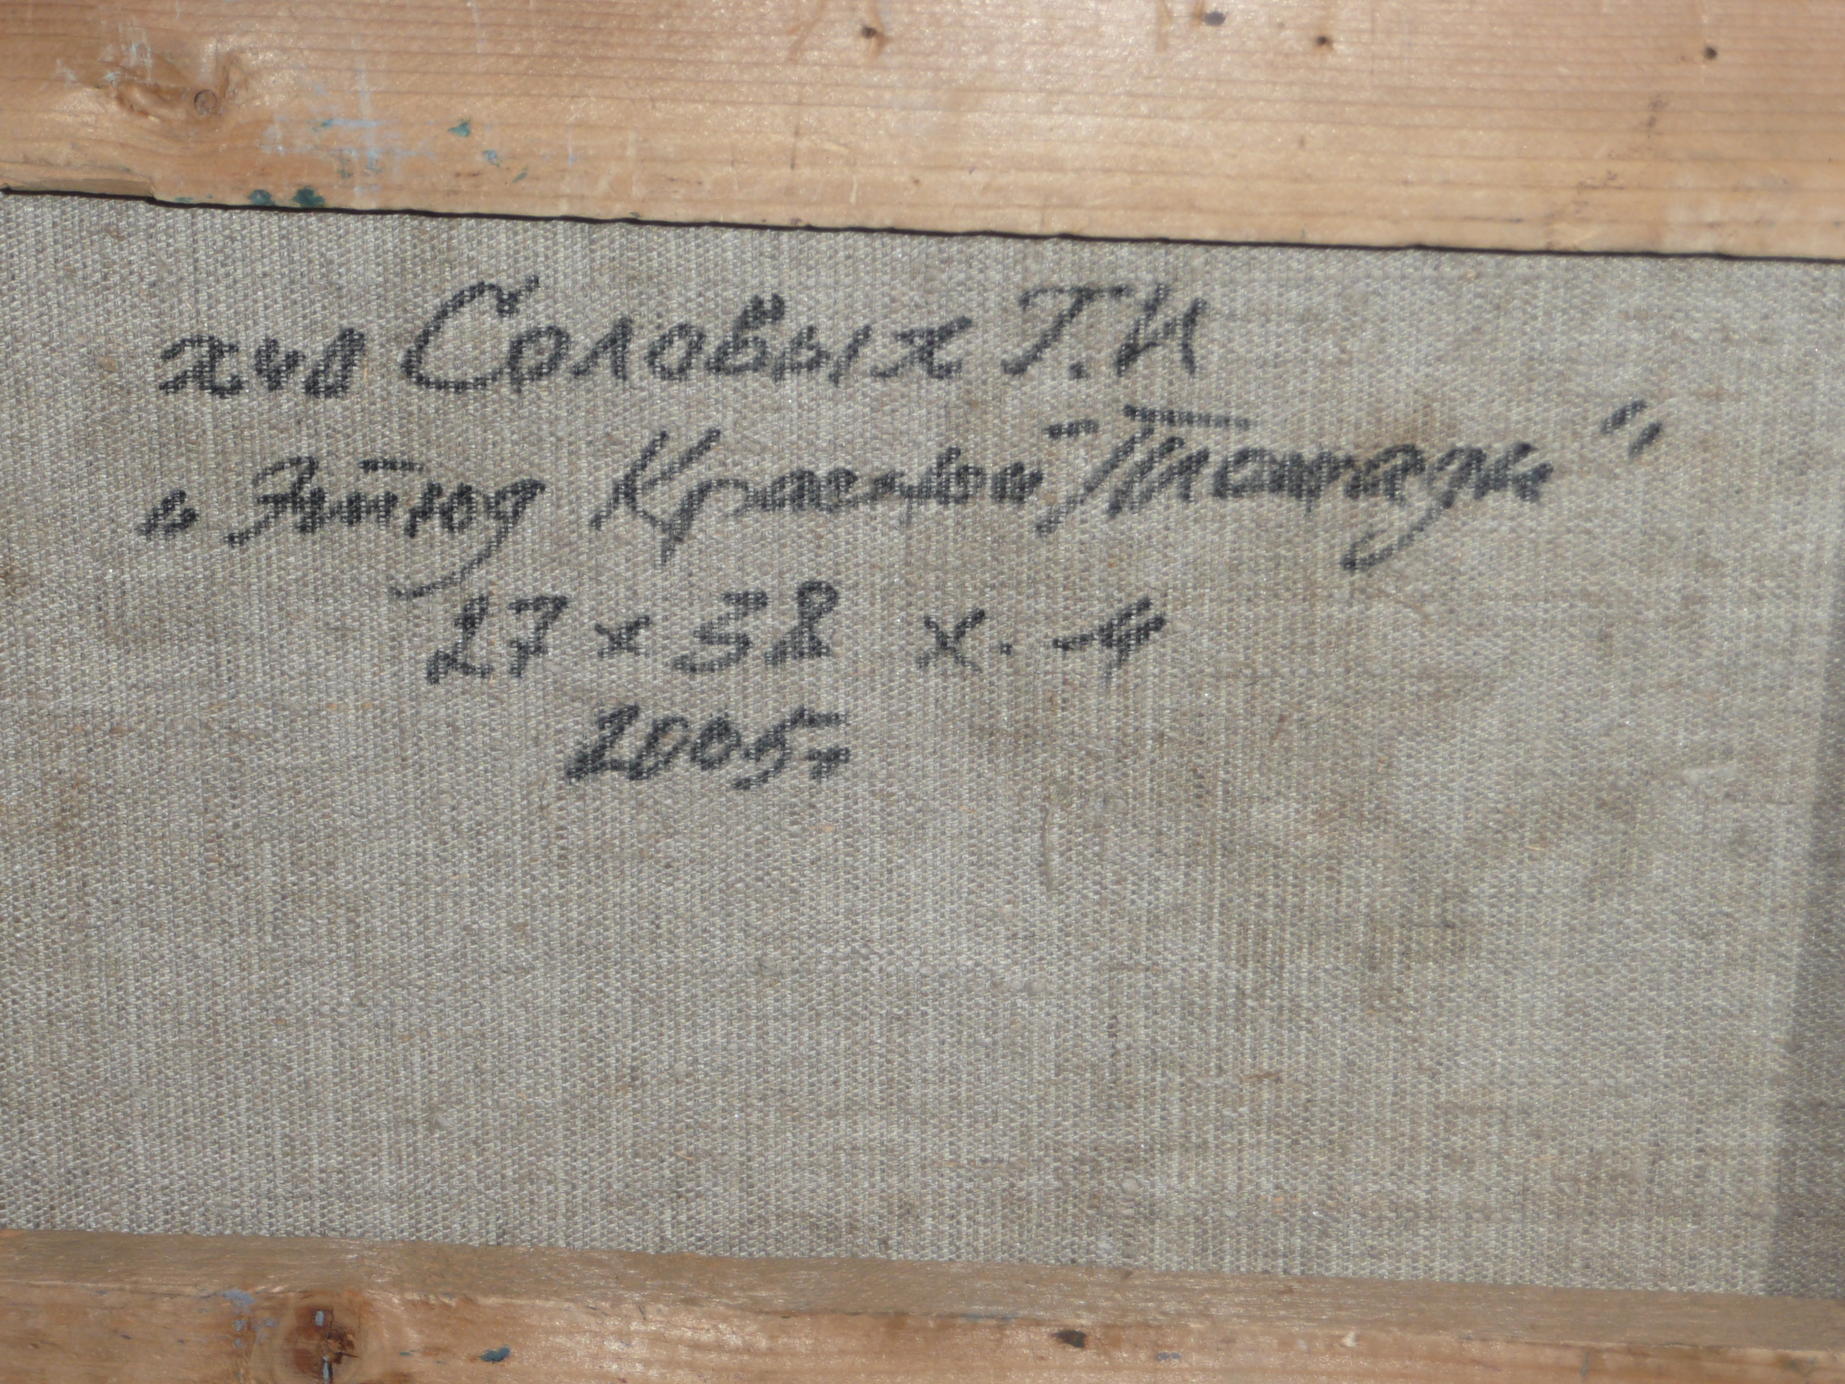 худ Соловых Г.И
"Этюд Красной Площади"
27 x 38 х. м
2005г